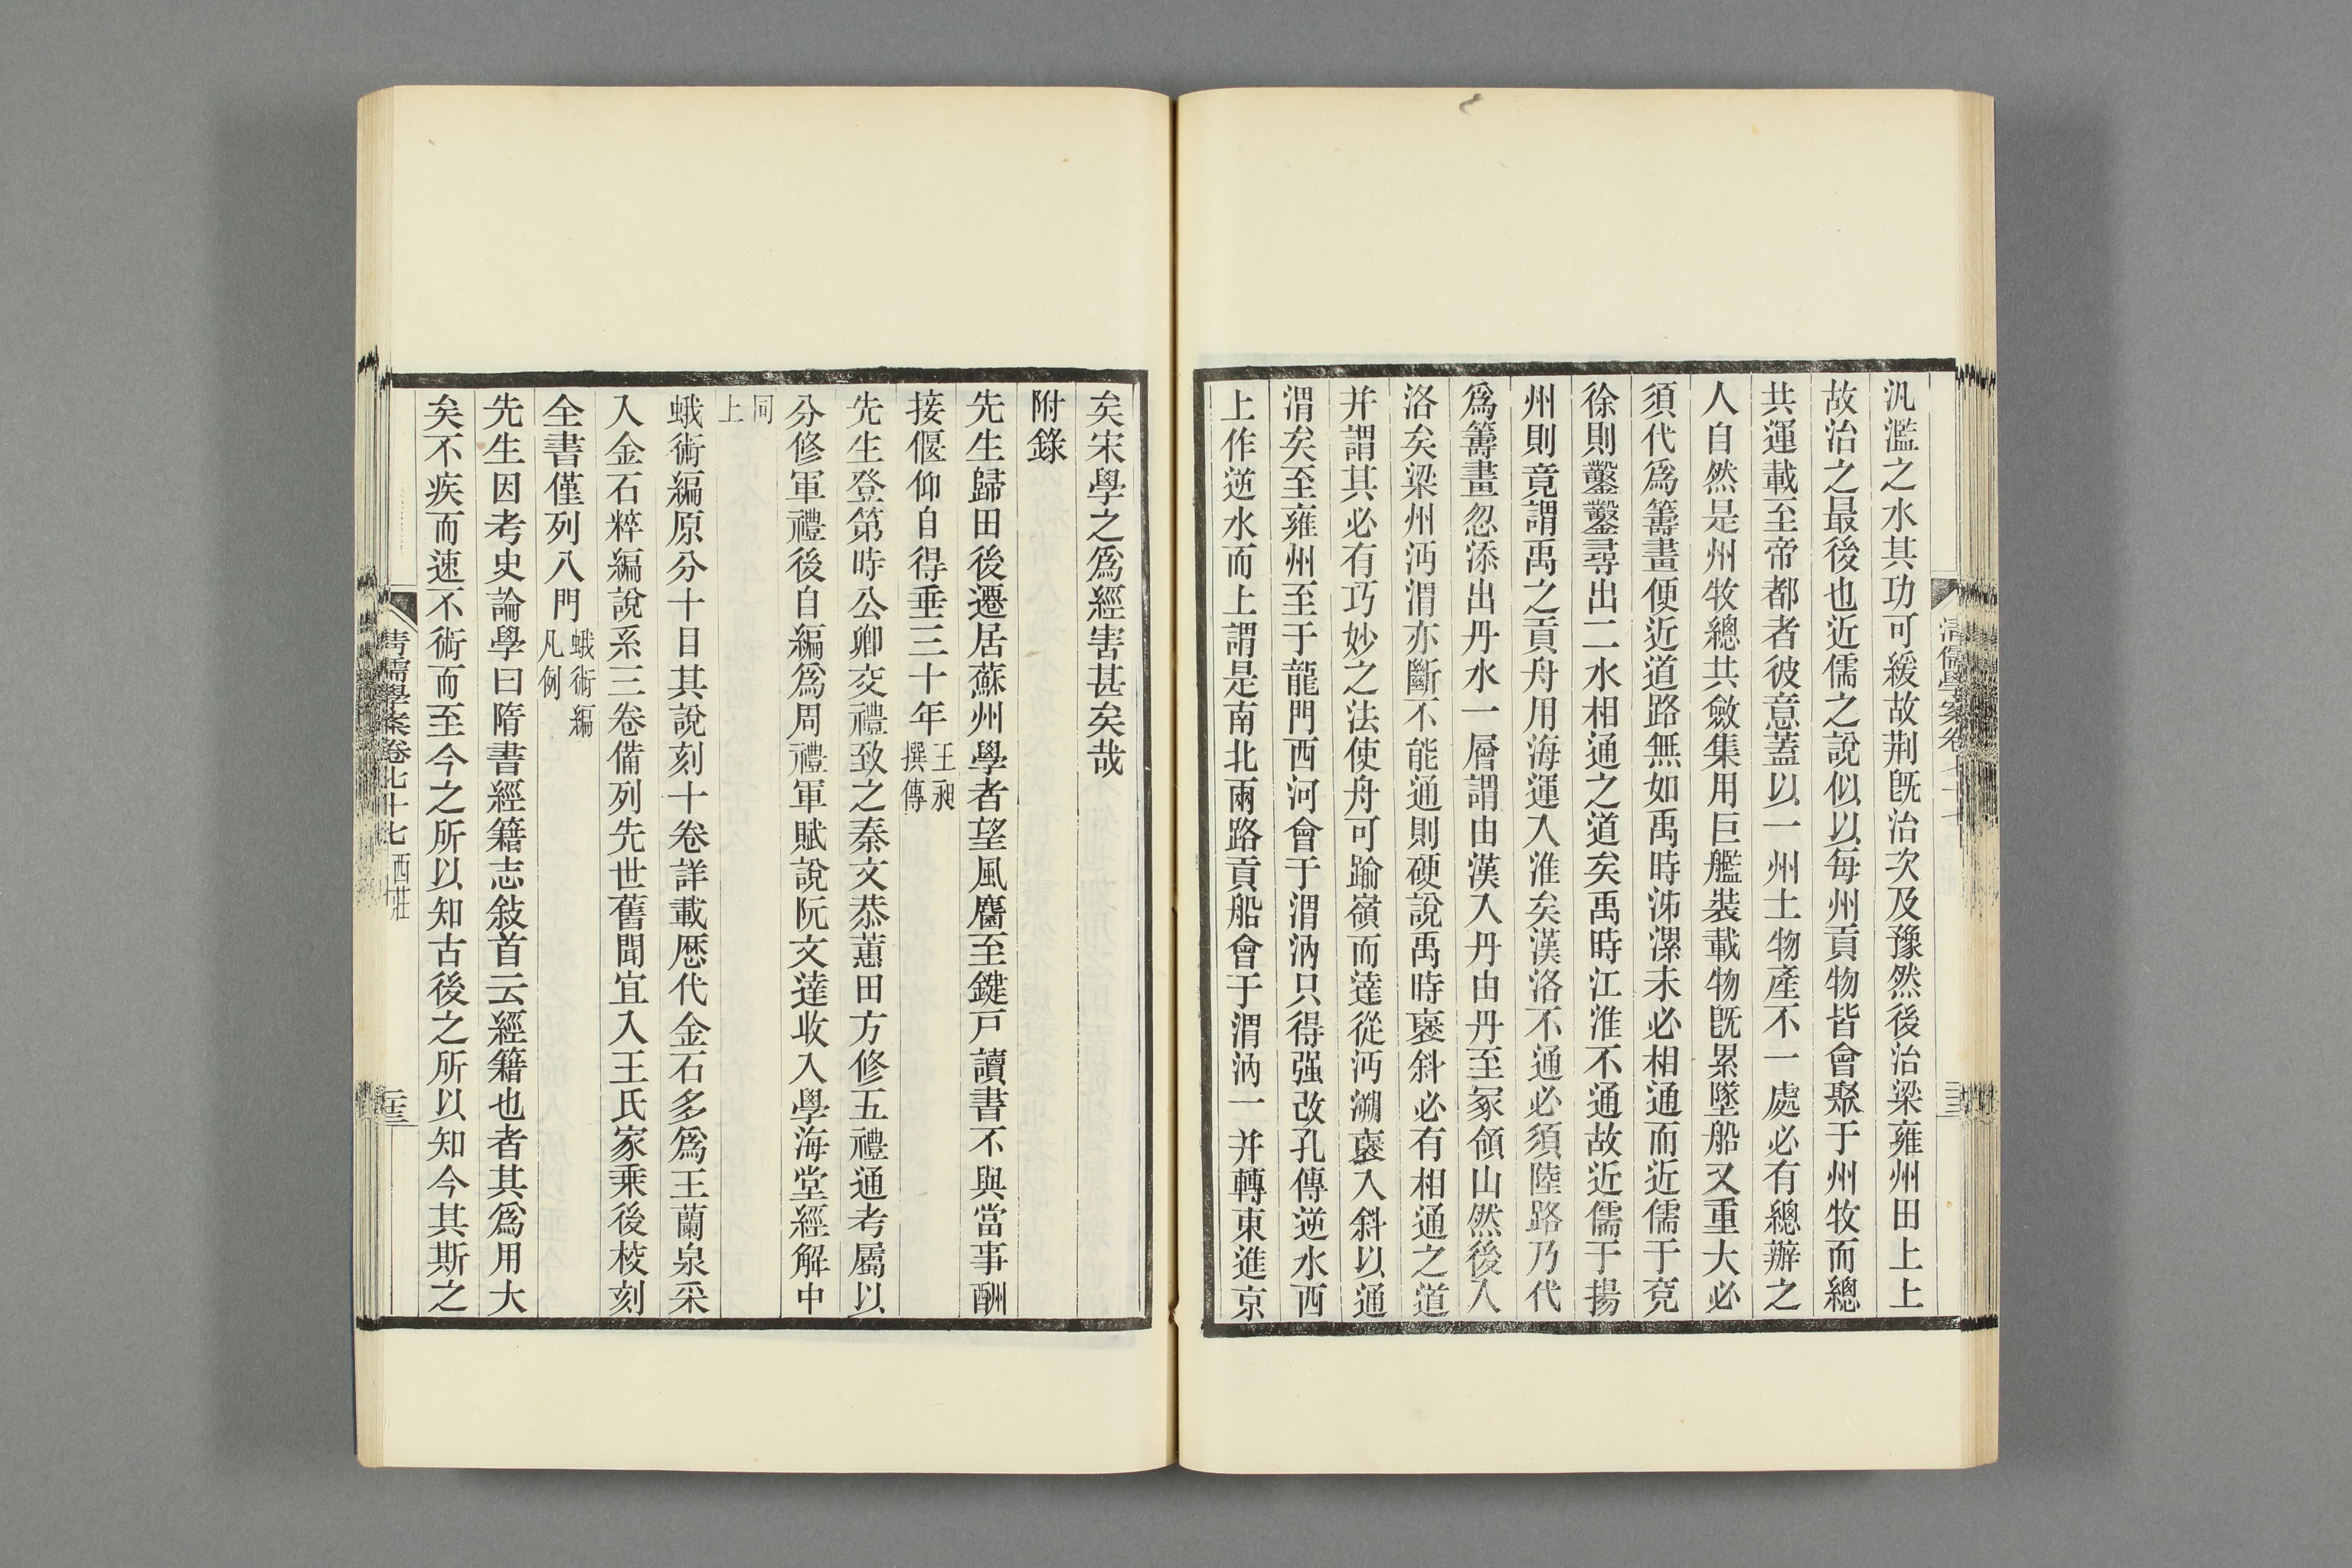 汎濫之水其功可緩故荆旣治次及豫然後治梁雍州田上上
故治之最後也近儒之說似以每州貢物皆會聚于州牧而總
共運載至帝都者彼意蓋以一州土物產不一處必有總辦之
人自然是州牧總共斂集用巨艦裝載物旣累墜船又重大必
須代爲籌畫便近道路無如禹時泲漯未必相通而近儒于兗
徐則鑿鑿尋出二水相通之道矣禹時江淮不通故近儒于揚
州則竟謂禹之貢舟用海運入淮矣漢洛不通必須陸路乃代
爲籌畫忽添出丹水一層謂由漢入丹由丹至冢領山然後入
洛矣梁州沔渭亦斷不能通則硬說禹時褒斜必有相通之道
并謂其必有巧妙之法使舟可踰嶺而達從沔溯褒入斜以通
渭矣至雍州至于龍門西河會于渭汭只得强改孔傳逆水西
上作逆水而上謂是南北兩路貢船會于渭汭一并轉東進京
矣宋學之爲經害甚矣哉
附錄
先生歸田後遷居蘇州學者望風麕至鍵戸讀書不與當事酬
接偃仰自得垂三十年王昶撰傳
先生登第時公卿交禮致之秦文恭蕙田方修五禮通考屬以
分修軍禮後自編爲周禮軍賦說阮文達收入學海堂經解中
同上
蛾術編原分十目其說刻十卷詳載歷代金石多爲王蘭泉采
入金石粹編說系三卷備列先世舊聞宜入王氏家乘後校刻
全書僅列八門蛾術編凡例
先生因考史論學曰隋書經籍志敍首云經籍也者其爲用大
矣不疾而速不術而至今之所以知古後之所以知今其斯之
清儒學案卷七十七 西莊